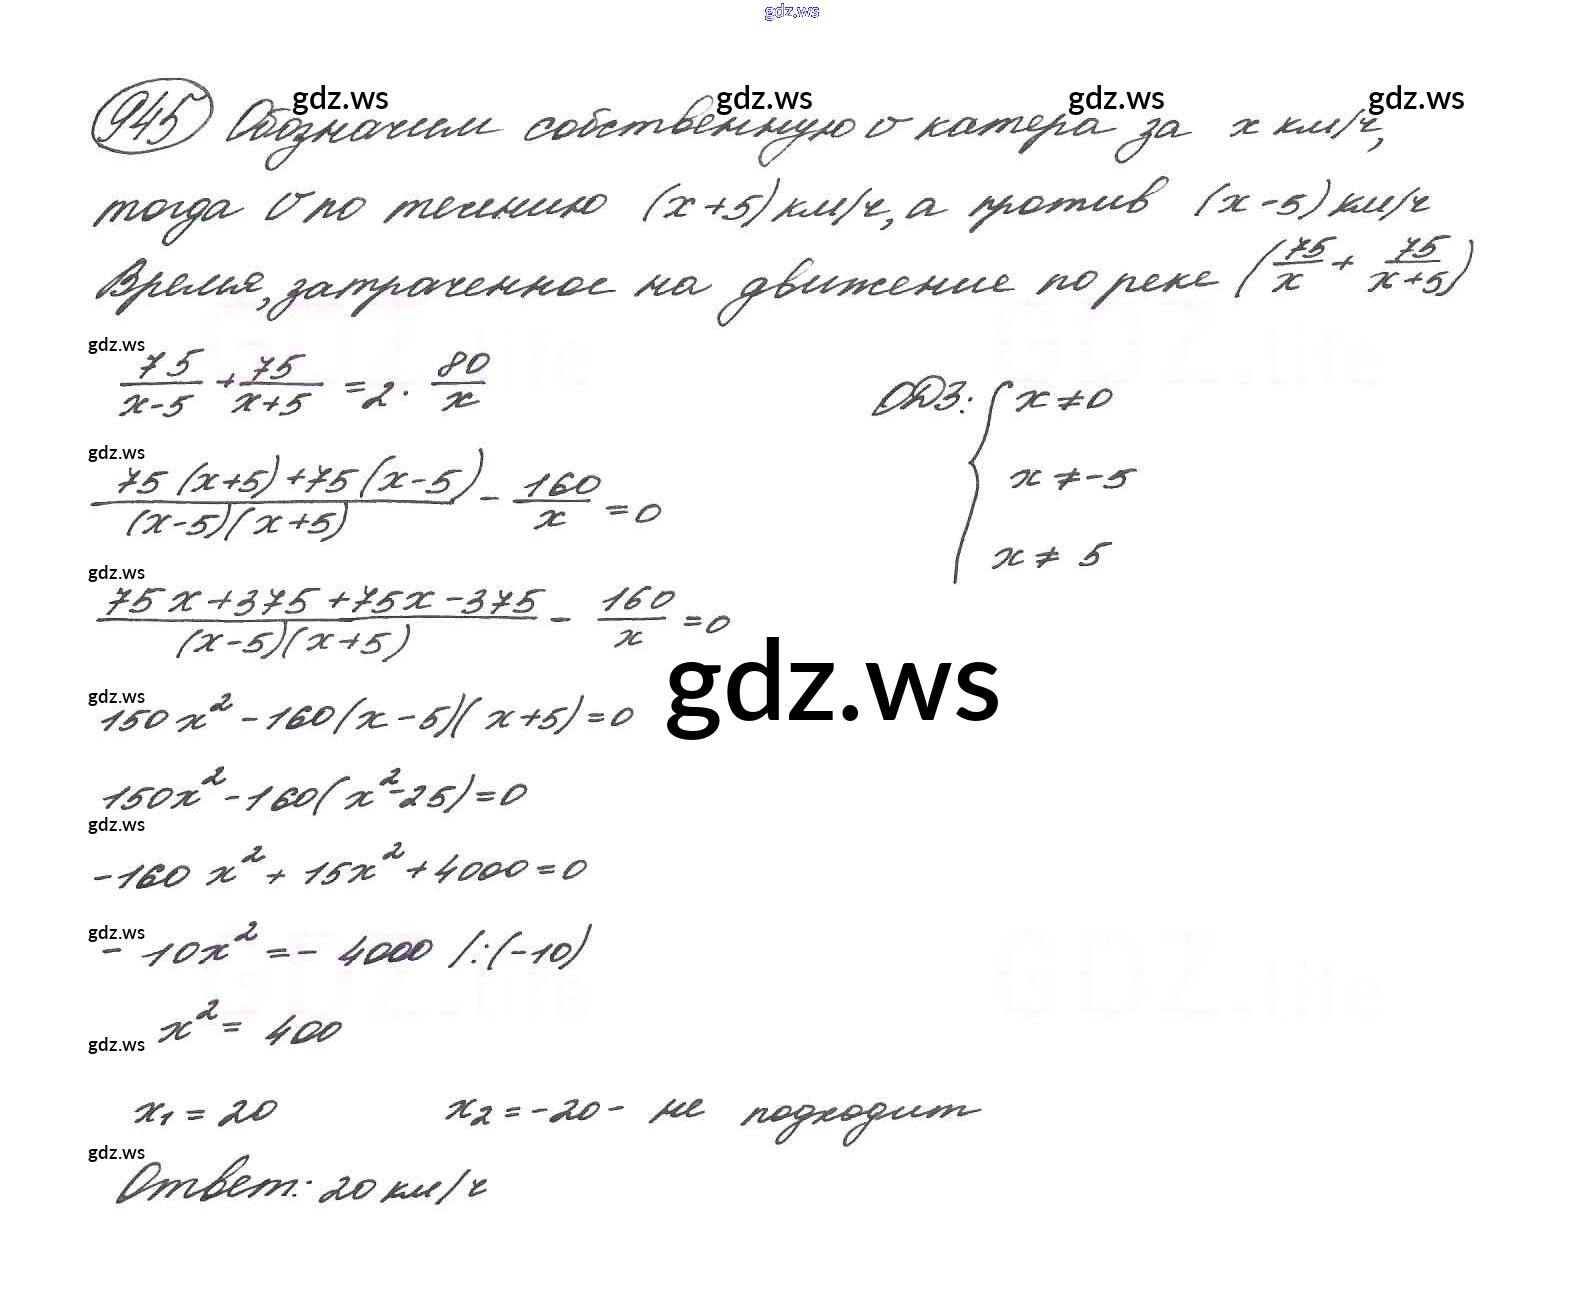 gdz.ws
gdz.ws gdz.ws gdz.ws gdz.ws
945 Обозначим собственную v катера за x км/ч,
тогда v по течению (x+5) км/ч, а против (x-5) км/ч
Время, затраченное на движение по реке (75/x + 75/(x+5))
gdz.ws
75/(x-5) + 75/(x+5) = 2 · 80/x
ОДЗ: { x ≠ 0
x ≠ -5
x ≠ 5
gdz.ws
(75(x+5)+75(x-5))/((x-5)(x+5)) - 160/x = 0
gdz.ws
(75x+375+75x-375)/((x-5)(x+5)) - 160/x = 0
gdz.ws
gdz.ws
150x² - 160(x-5)(x+5) = 0
150x² - 160(x²-25) = 0
gdz.ws
-160x² + 15x² + 4000 = 0
gdz.ws
- 10x² = - 4000 /:(-10)
x² = 400
gdz.ws
x₁ = 20 x₂ = -20 - не подходит
gdz.ws
Ответ: 20 км/ч
GDZ.life
GDZ.life
GDZ.life
GDZ.life